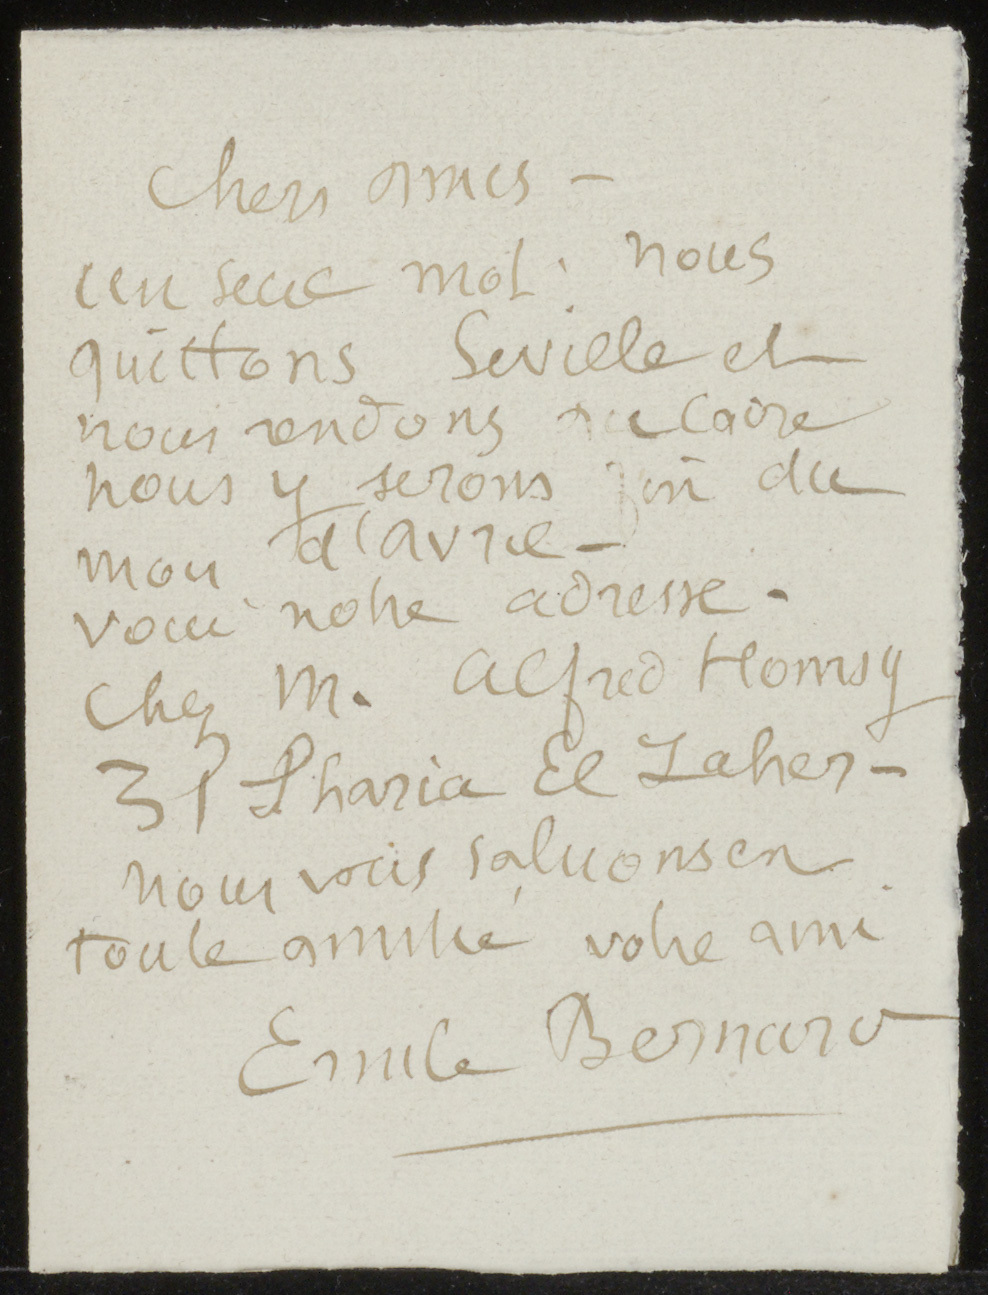 Chers amis –
un seul mot : nous
quittons Seville et
nous rendons au Caire
nous y serons fin du
mois d'avril –
voici notre adresse .
chez M. Alfred Homsy
31 Sharia El Zaher –
nous vous saluons en
toute amitié votre ami
Emile Bernard